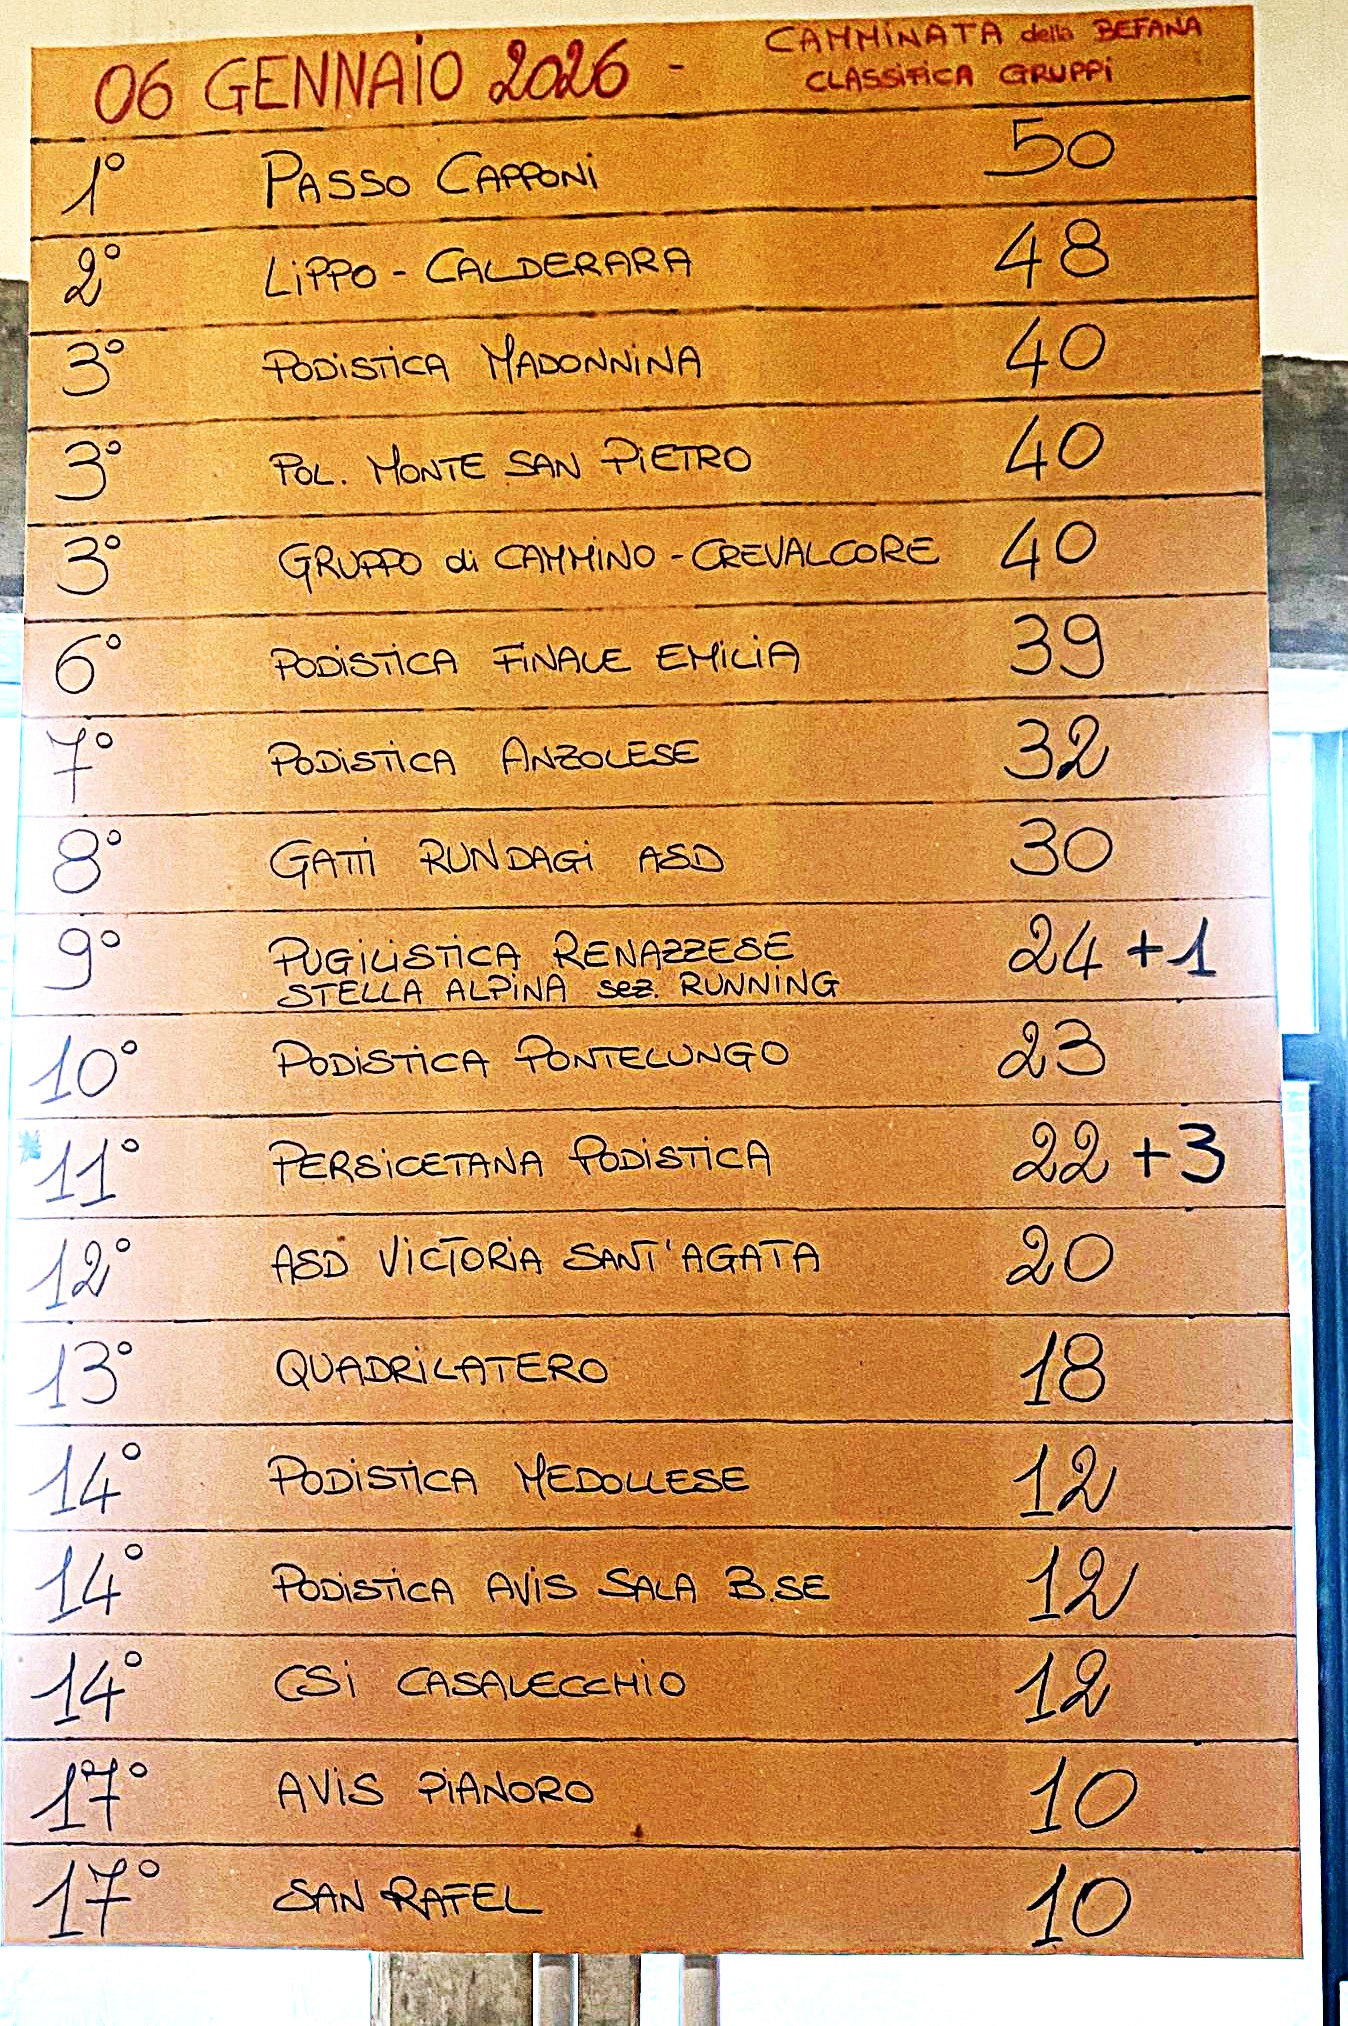 06 GENNAIO 2026 - CAMMINATA della BEFANA
CLASSIFICA GRUPPI
1° PASSO CAPPONI 50
2° LIPPO - CALDERARA 48
3° PODISTICA MADONNINA 40
3° POL. MONTE SAN PIETRO 40
3° GRUPPO di CAMMINO - CREVALCORE 40
6° PODISTICA FINALE EMILIA 39
7° PODISTICA ANZOLESE 32
8° GATTI RUNDAGI ASD 30
9° PUGILISTICA RENAZZESE 24 +1
STELLA ALPINA sez. RUNNING
10° PODISTICA PONTELUNGO 23
*11° PERSICETANA PODISTICA 22 +3
12° ASD VICTORIA SANT'AGATA 20
13° QUADRILATERO 18
14° PODISTICA MEDOLLESE 12
14° PODISTICA AVIS SALA B.SE 12
14° CSI CASALECCHIO 12
17° AVIS PIANORO 10
17° SAN RAFEL 10